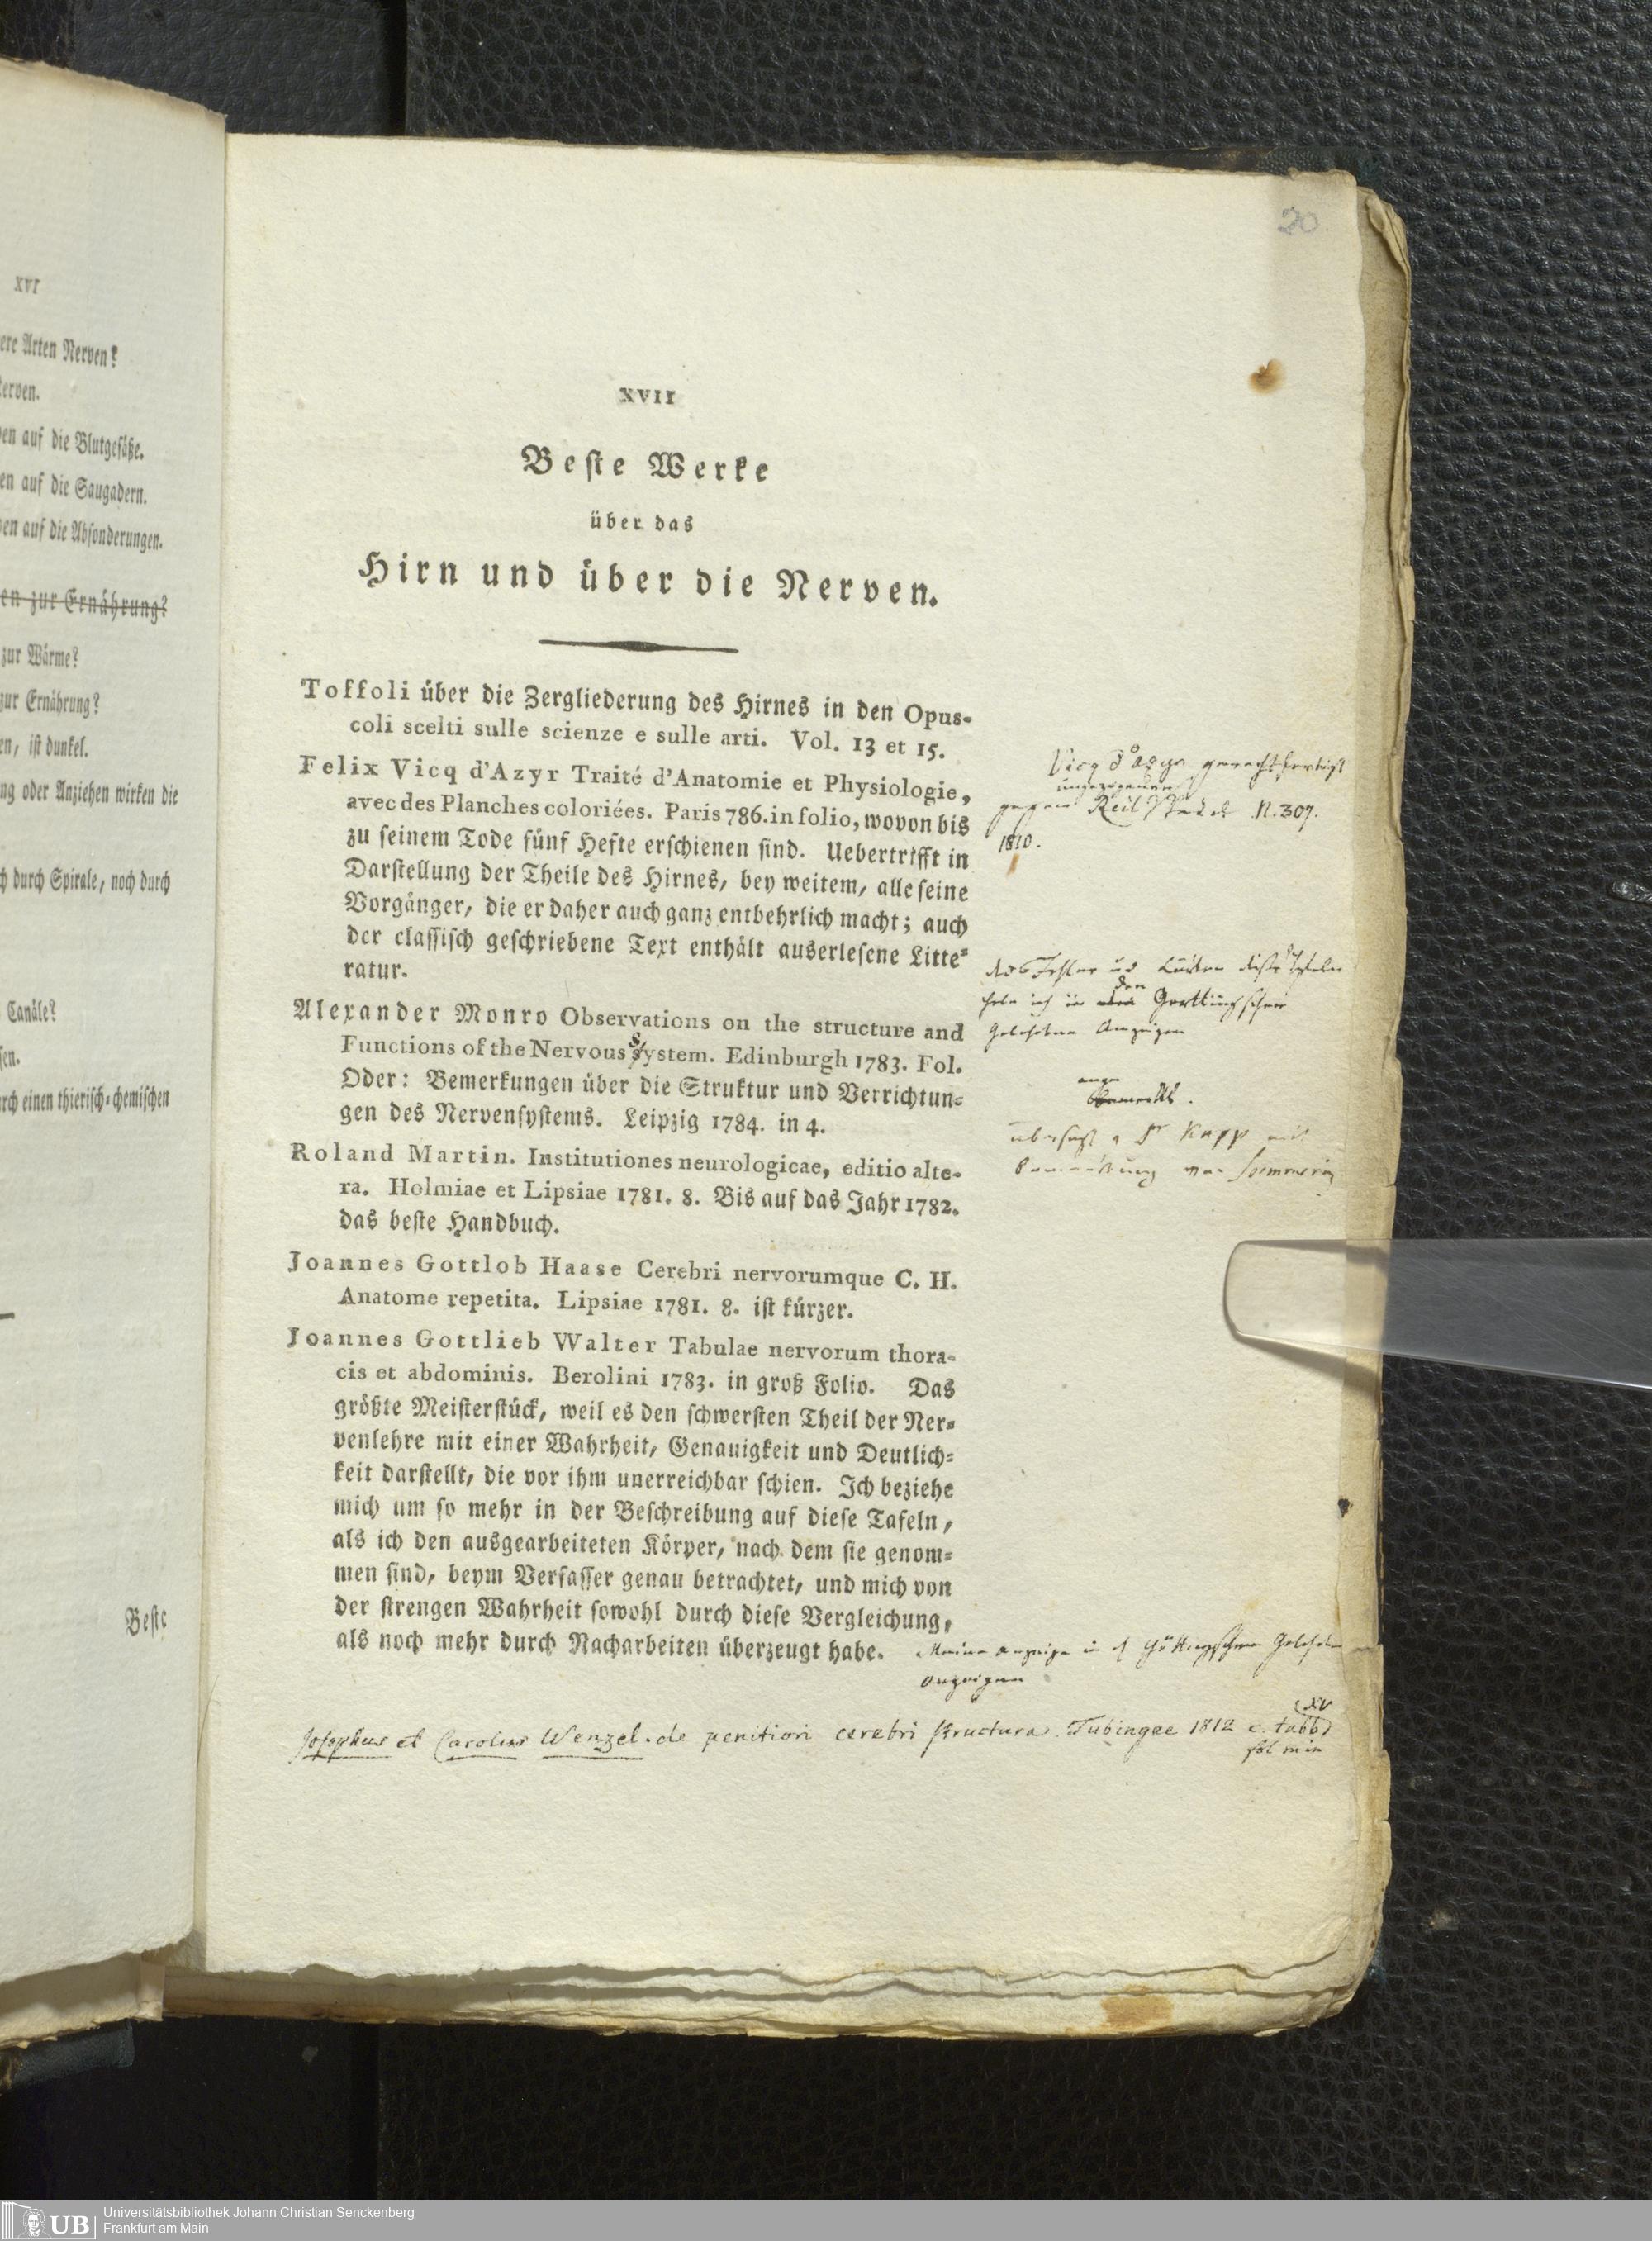 XVI
ere Arten Nerven?
erven.
en auf die Blutgefäße.
en auf die Saugadern.
en auf die Absonderungen.
en zur Ernährung?
zur Wärme?
zur Ernährung?
en, ist dunkel.
ng oder Anziehen wirken die
ch durch Spirale, noch durch
Canäle?
sen.
rch einen thierisch-chemischen
Beste
20
XVII
Beste Werke
über das
Hirn und über die Nerven.
Toffoli über die Zergliederung des Hirnes in den Opus-
coli scelti sulle scienze e sulle arti. Vol. 13 et 15.
Felix Vicq d'Azyr Traité d'Anatomie et Physiologie,
avec des Planches coloriées. Paris 786. in folio, wovon bis
zu seinem Tode fünf Hefte erschienen sind. Uebertrifft in
Darstellung der Theile des Hirnes, bey weitem, alle seine
Vorgänger, die er daher auch ganz entbehrlich macht; auch
der classisch geschriebene Text enthält auserlesene Litte-
ratur.
Vicq d'Azyr gerechtfertigt
gegen Reil N. 307.
1810.
Alexander Monro Observations on the structure and
Functions of the Nervous System. Edinburgh 1783. Fol.
Oder: Bemerkungen über die Struktur und Verrichtun-
gen des Nervensystems. Leipzig 1784. in 4.
habe ich in den Goettingschen
Gelehrten Anzeigen
angemerkt.
übersezt v Dr Kapp mit
Bemerkung von Soemmering
Roland Martin. Institutiones neurologicae, editio alte-
ra. Holmiae et Lipsiae 1781. 8. Bis auf das Jahr 1782.
das beste Handbuch.
Joannes Gottlob Haase Cerebri nervorumque C. H.
Anatome repetita. Lipsiae 1781. 8. ist kürzer.
Joannes Gottlieb Walter Tabulae nervorum thora-
cis et abdominis. Berolini 1783. in groß Folio. Das
größte Meisterstück, weil es den schwersten Theil der Ner-
venlehre mit einer Wahrheit, Genauigkeit und Deutlich-
keit darstellt, die vor ihm unerreichbar schien. Ich beziehe
mich um so mehr in der Beschreibung auf diese Tafeln,
als ich den ausgearbeiteten Körper, nach dem sie genom-
men sind, beym Verfasser genau betrachtet, und mich von
der strengen Wahrheit sowohl durch diese Vergleichung,
als noch mehr durch Nacharbeiten überzeugt habe.
Meine Anzeige in d Göttingschen Gelehrten
Anzeigen
Josephus et Carolus Wenzel. de penitiori cerebri structura. Tubingae 1812 c. tabb
fol min
Universitätsbibliothek Johann Christian Senckenberg
Frankfurt am Main
UB